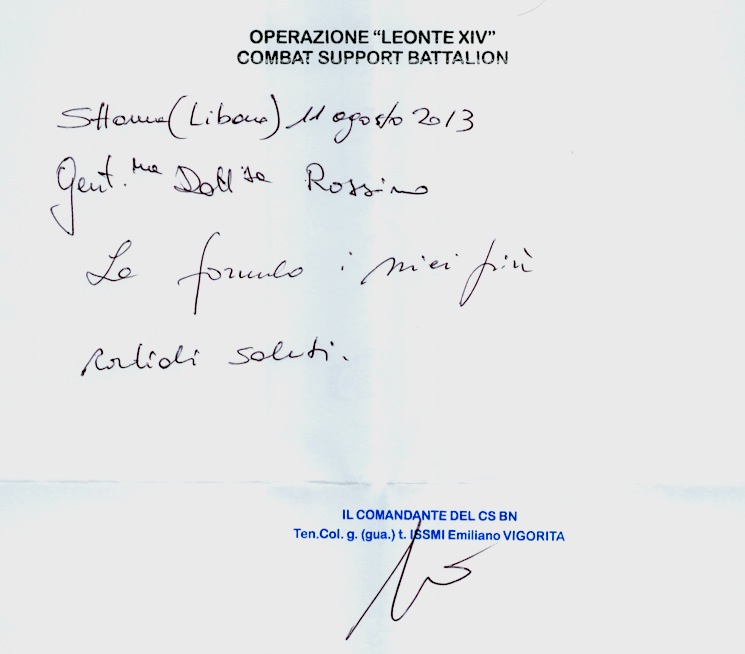 OPERAZIONE “LEONTE XIV”
COMBAT SUPPORT BATTALION
(Libano) 11 agosto 2013
Gent.ma Dott.ssa Rossino
Le formulo i miei più
cordiali saluti.
IL COMANDANTE DEL CS BN
Ten.Col. g. (gua.) t. ISSMI Emiliano VIGORITA